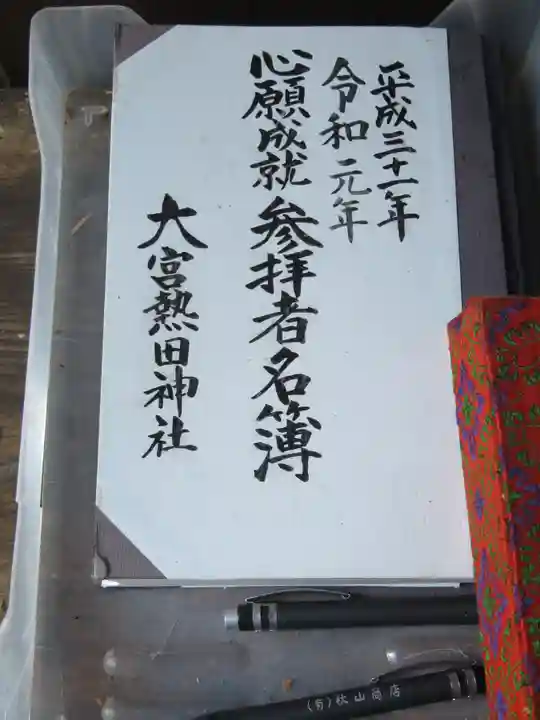 平成三十一年
令和元年
心願成就参拝者名簿
大宮熱田神社
(有)秋山商店